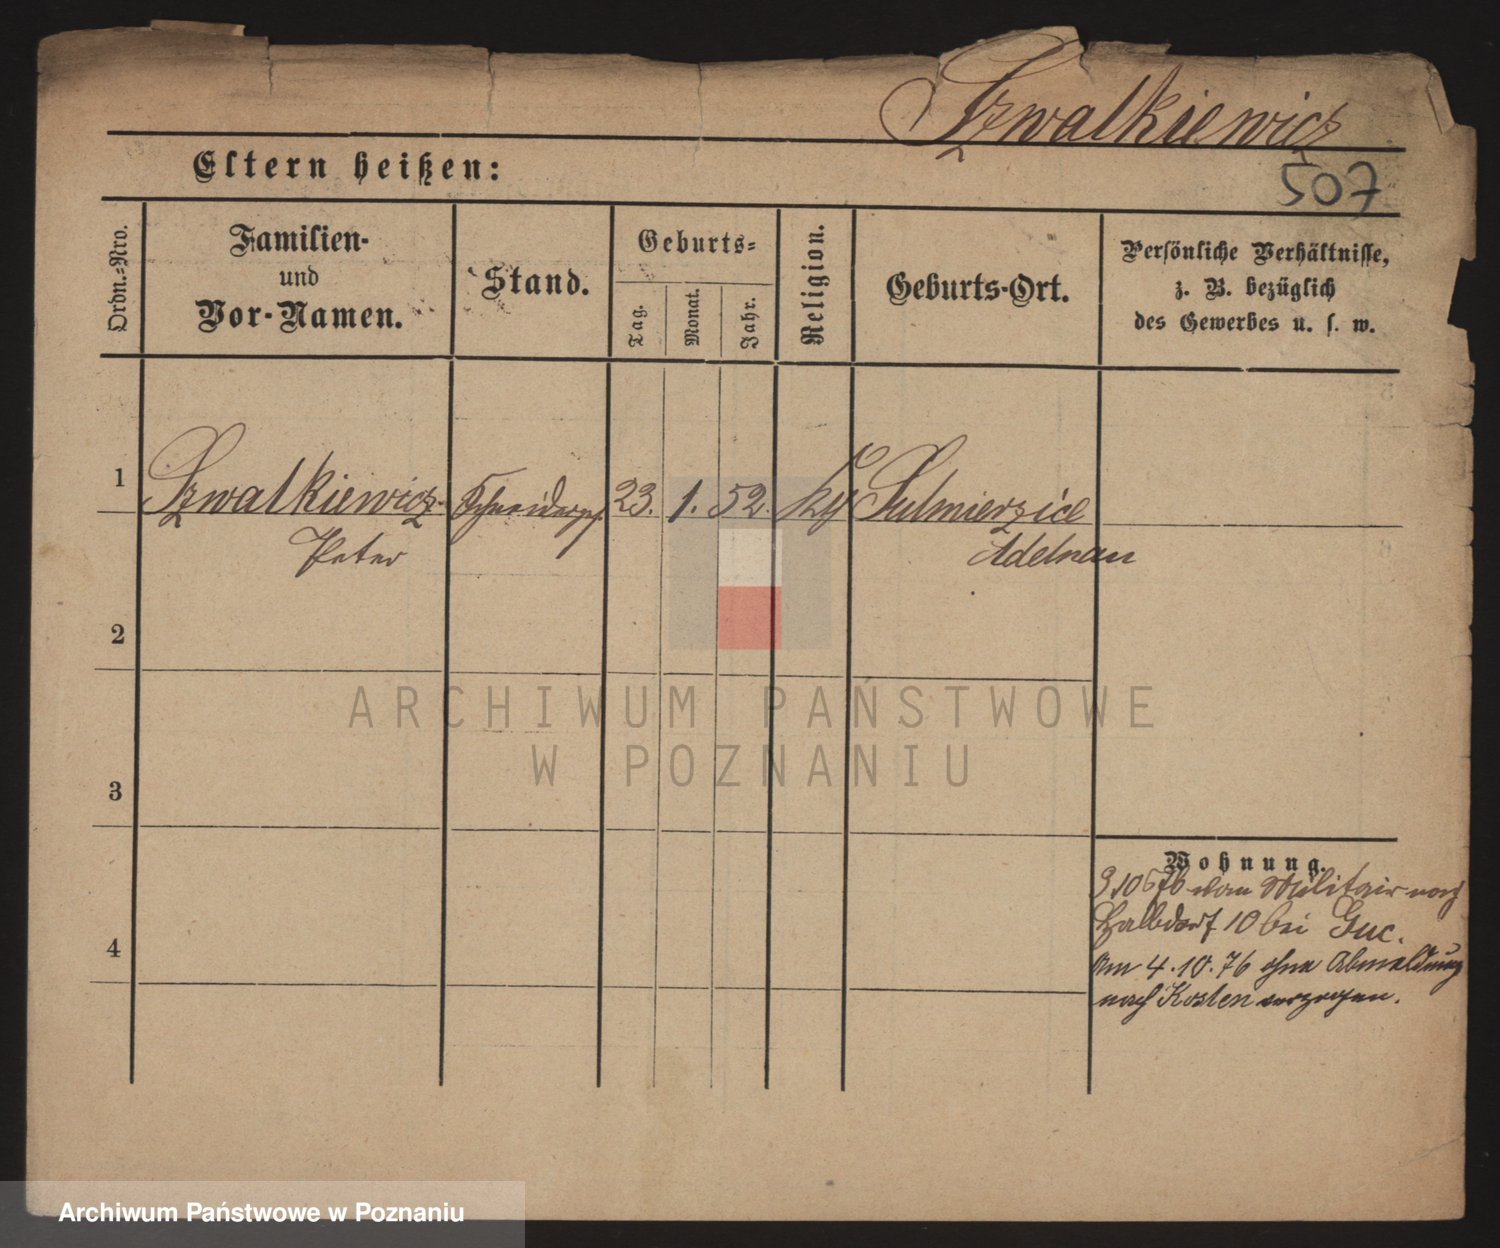 Szwalkiewicz
507
Eltern heißen:
Ordn.-Nro.
Familien-
und
Vor-Namen.
Stand.
Geburts-
Tag.
Monat.
Jahr.
Religion.
Geburts-Ort.
Persönliche Verhältnisse,
z. B. bezüglich
des Gewerbes u. s. w.
1 Szwalkiewicz Schneiderges. 23. 1. 52. Sulmierzice
Peter Adelnau
2
3
4
Wohnung.
76 vom Militair nach
Halbdorf 10 bei Guc.
Am 4.10.76 ohne Abmeldung
nach Kosten verzogen.
ARCHIWUM PAŃSTWOWE
W POZNANIU
Archiwum Państwowe w Poznaniu